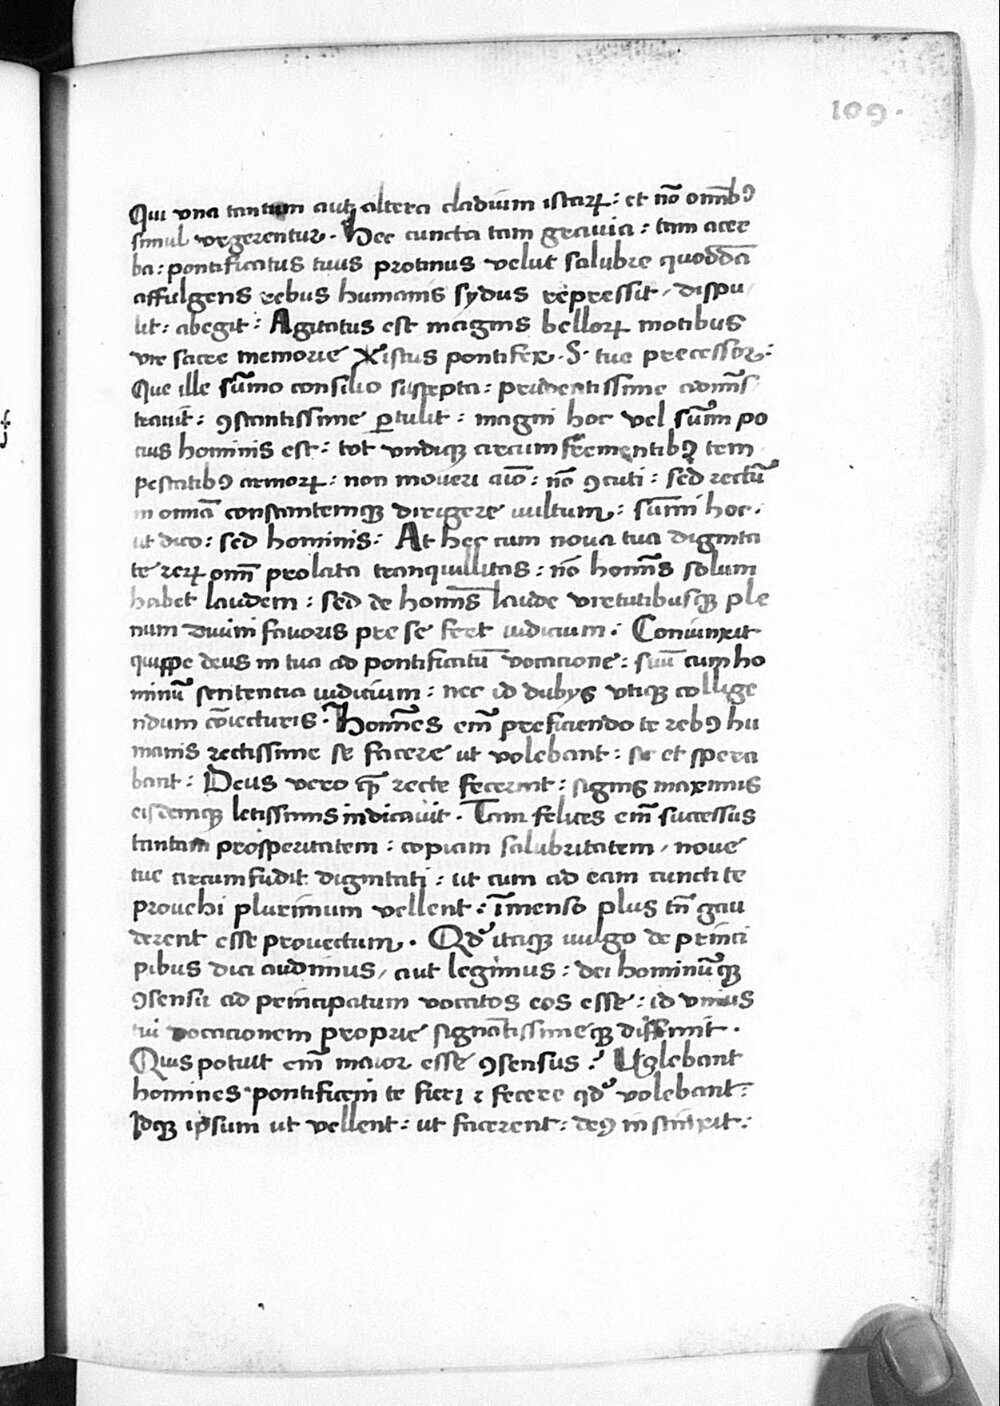 109.
Qui una tantum aut altera cladium istarꝝ : et nō omībꝰ
simul vrgerentur . Hec cuncta tam grauia : tam acer
ba : pontificatus tuus protinus velut salubre quoddā
affulgens rebus humanis sydus repressit / dispu
lit : abegit : Agitatus est magnis bellorꝝ motibus
vir sacre memorie Xistus pontifex . S . tue precessor :
Que ille sūmo consilio suscepta : prudentissime admīs
trauit : ꝯstantissime ꝑtulit : magni hoc vel sūm po
cius hominis est : tot vndiqꝫ circum frementibꝰ tem
pestatibꝰ armorꝝ : non moueri aīo : nō ꝯcuti : sed rectū
in omnia constantemqꝫ dirigere uultum : sūmi hoc .
ut dico : sed hominis : At hec cum noua tua dignita
te rerꝝ omī prolata tranquillitas : nō homīs solum
habet laudem : sed de homīs laude virtutibusqꝫ ple
num diuini fauoris pre se fert iudicium : Coniunxit
quippe deus in tua ad pontificatū vocacione : suū cum ho
minū sententia iudicium : nec id dubys vtiqꝫ collige
ndum cōiecturis . Homīes em̄ preficiendo te rebꝰ hu
manis rectissime se facere ut volebant : sic et spera
bant : Deus vero qꝫ recte fecerint : signis maximis
eisdemqꝫ letissimis indicauit . Tam felices em̄ successus
tantam prosperitatem : copiam salubritatem / noue
tue circumfudit dignitati : ut cum ad eam cuncti te
prouehi plurimum vellent : īmenso plus tn̄ gau
derent esse prouectum . Qd' itaqꝫ uulgo de princi
pibus dici audimus / aut legimus : dei hominūqꝫ
ꝯsensu ad principatum vocatos eos esse : id vnius
tui vocacionem proprie signātissimeqꝫ diffinit .
Quis potuit em̄ maior esse ꝯsensus ? Uolebant
homines pontificem te fieri ⁊ fecere qd' volebant :
Idqꝫ ipsum ut vellent : ut facerent : deꝰ instinxit :